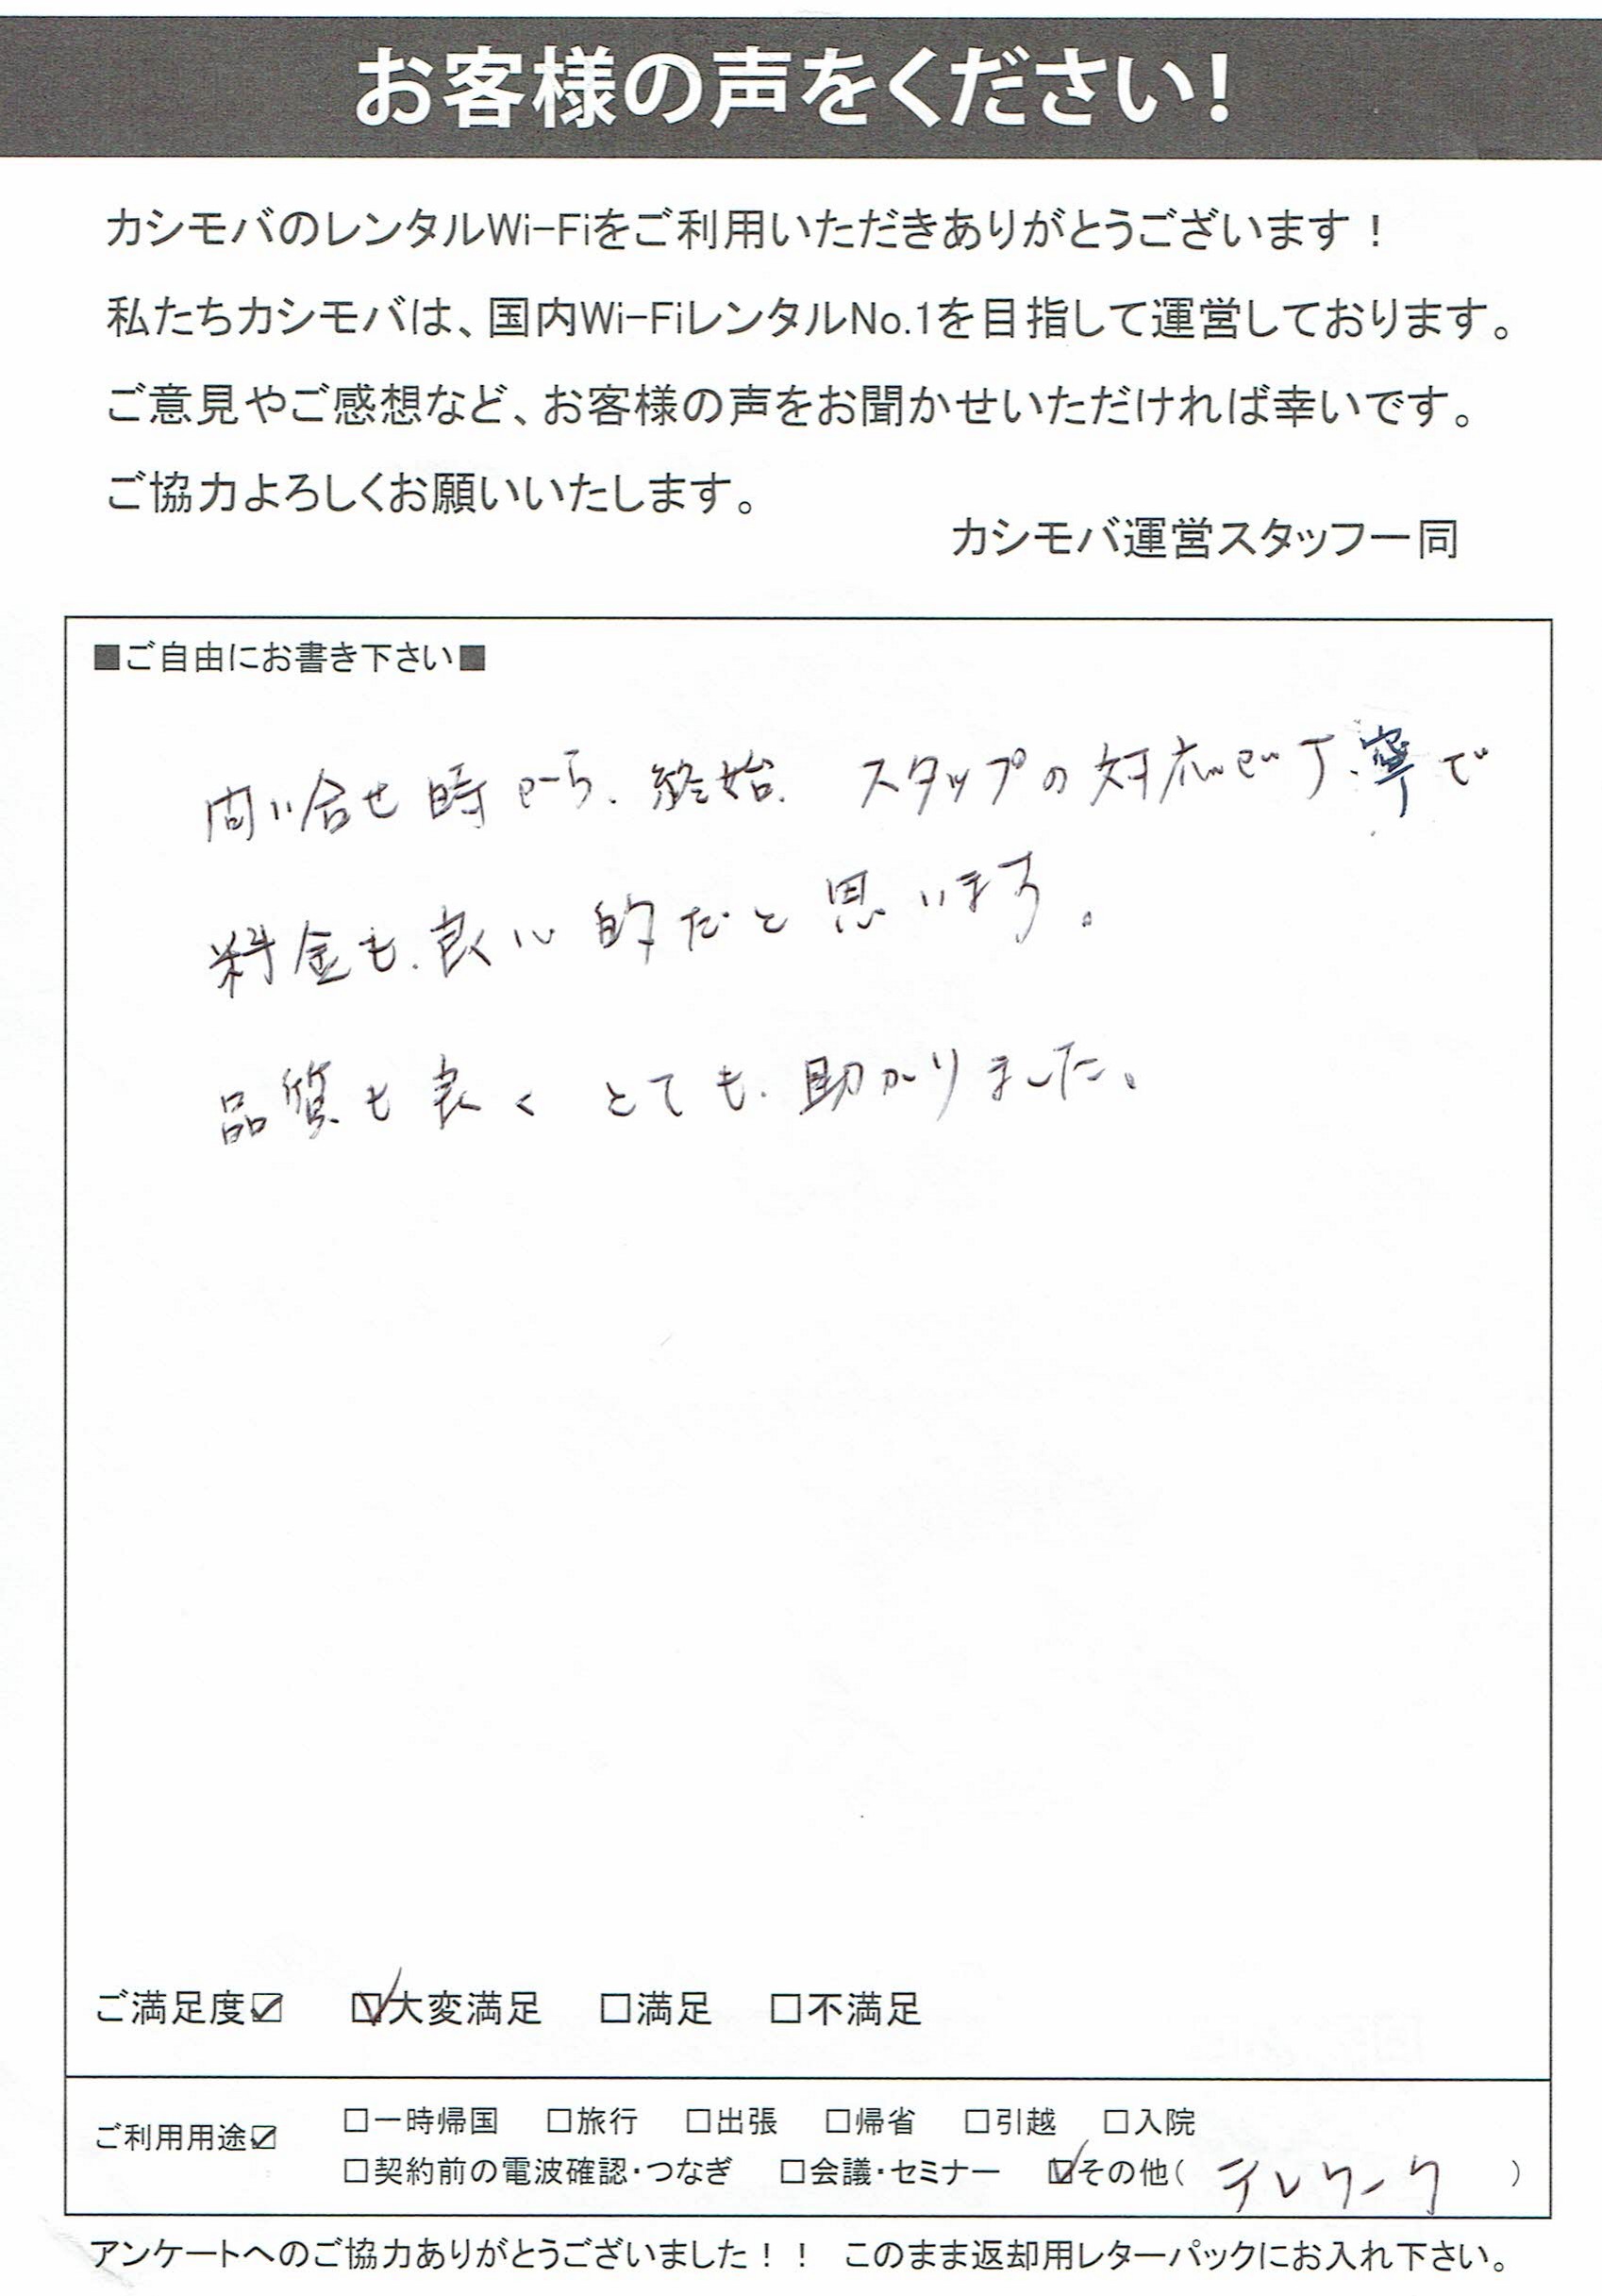 お客様の声をください!
カシモバのレンタルWi-Fiをご利用いただきありがとうございます！
私たちカシモバは、国内Wi-FiレンタルNo.1を目指して運営しております。
ご意見やご感想など、お客様の声をお聞かせいただければ幸いです。
ご協力よろしくお願いいたします。
カシモバ運営スタッフ一同
■ご自由にお書き下さい■
問い合せ時から、終始、スタップの対応が丁寧で
料金も、良心的だと思います。
品質も良くとても、助かりました。
ご満足度☑ ☑大変満足 □満足 □不満足
ご利用用途☑ □一時帰国 □旅行 □出張 □帰省 □引越 □入院
□契約前の電波確認・つなぎ □会議・セミナー ☑その他（テレワーク）
アンケートへのご協力ありがとうございました！！ このまま返却用レターパックにお入れ下さい。